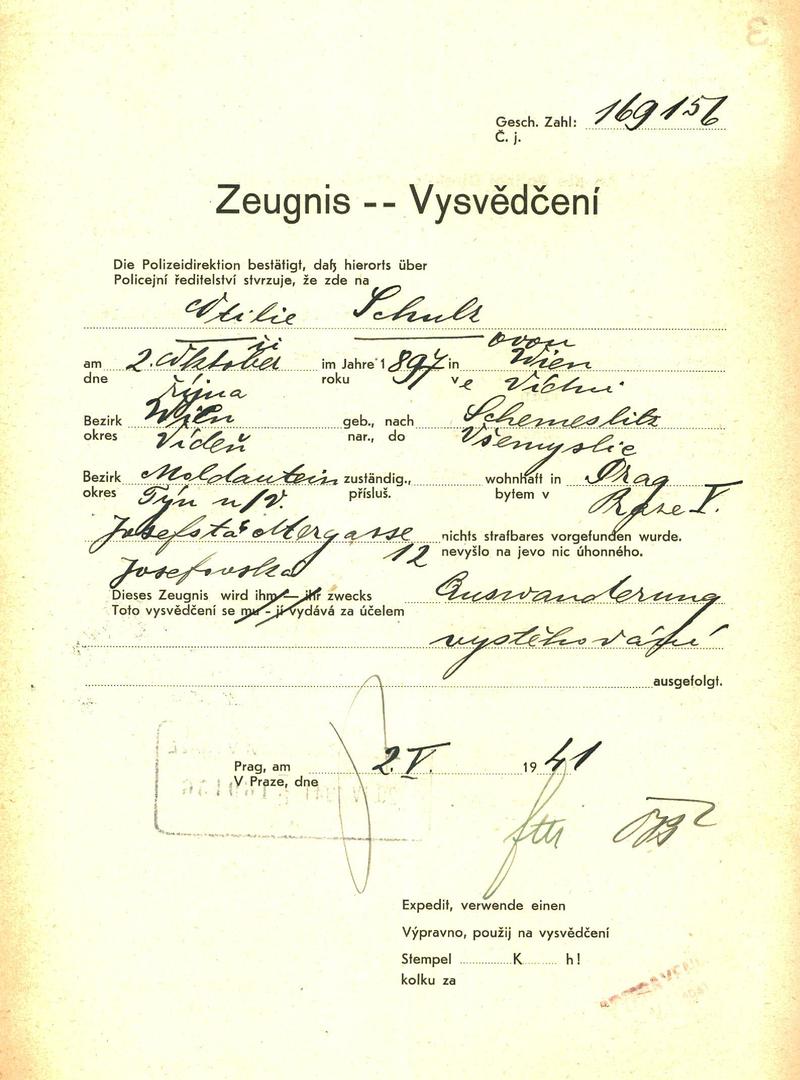 Gesch. Zahl: 169156
Č. j.
Zeugnis -- Vysvědčení
Die Polizeidirektion bestätigt, daß hierorts über
Policejní ředitelství stvrzuje, že zde na
Otilie Schulz
ii ovou
am 2. Oktober im Jahre 1 897 in Wien
dne října roku ve Vídni
Bezirk Wien geb., nach Schemeslitz
okres Vídeň nar., do Všemyslic
Bezirk Moldautein zuständig., wohnhaft in Prag
okres Týn n/V. přísluš. bytem v Praze V.
Josefstädtergasse nichts strafbares vorgefunden wurde.
12 nevyšlo na jevo nic úhonného.
Josefovská
Dieses Zeugnis wird ihm — ihr zwecks Auswanderung
Toto vysvědčení se mu - jí vydává za účelem
vystěhování
ausgefolgt.
Prag, am 2. V. 19 41
V Praze, dne
Expedit, verwende einen
Výpravno, použij na vysvědčení
Stempel K h!
kolku za